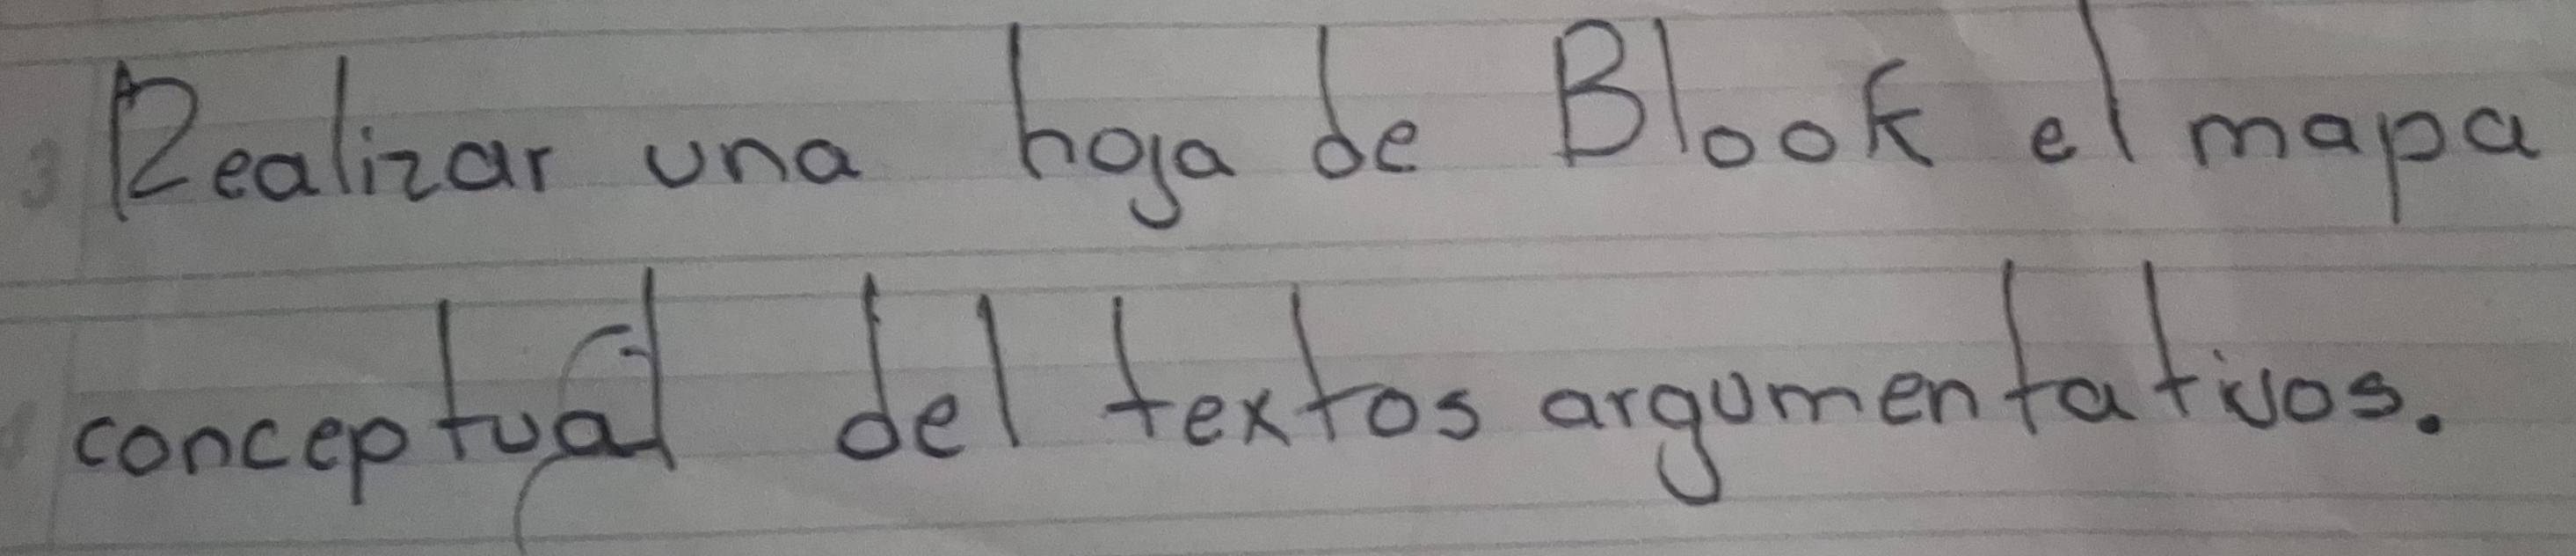 Realizar una hoja de Blook el mapa
conceptual del textos argumentativos.